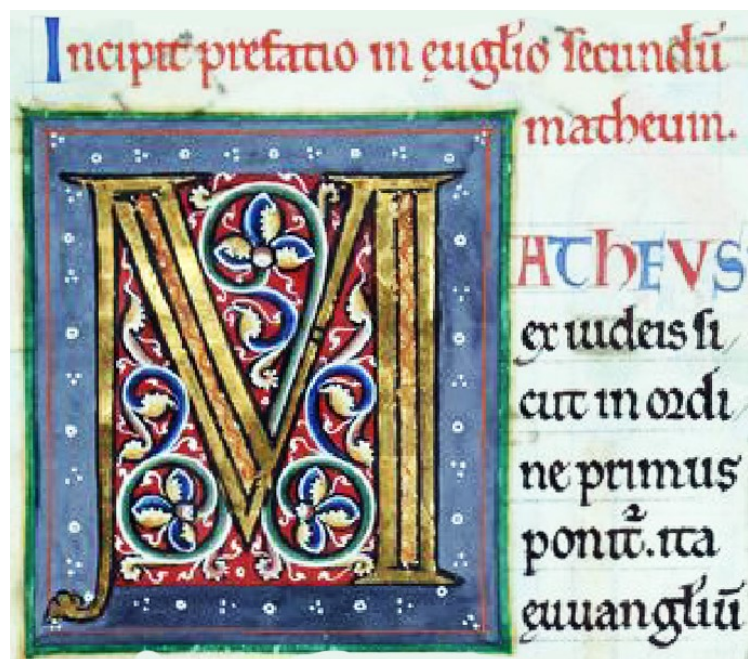 Incipit prefatio in euġlio ſecundū
matheum.
MATHEVS
ex iudeis ſi
cut in ordi
ne primus
ponit᷑. ita
euuangłiū